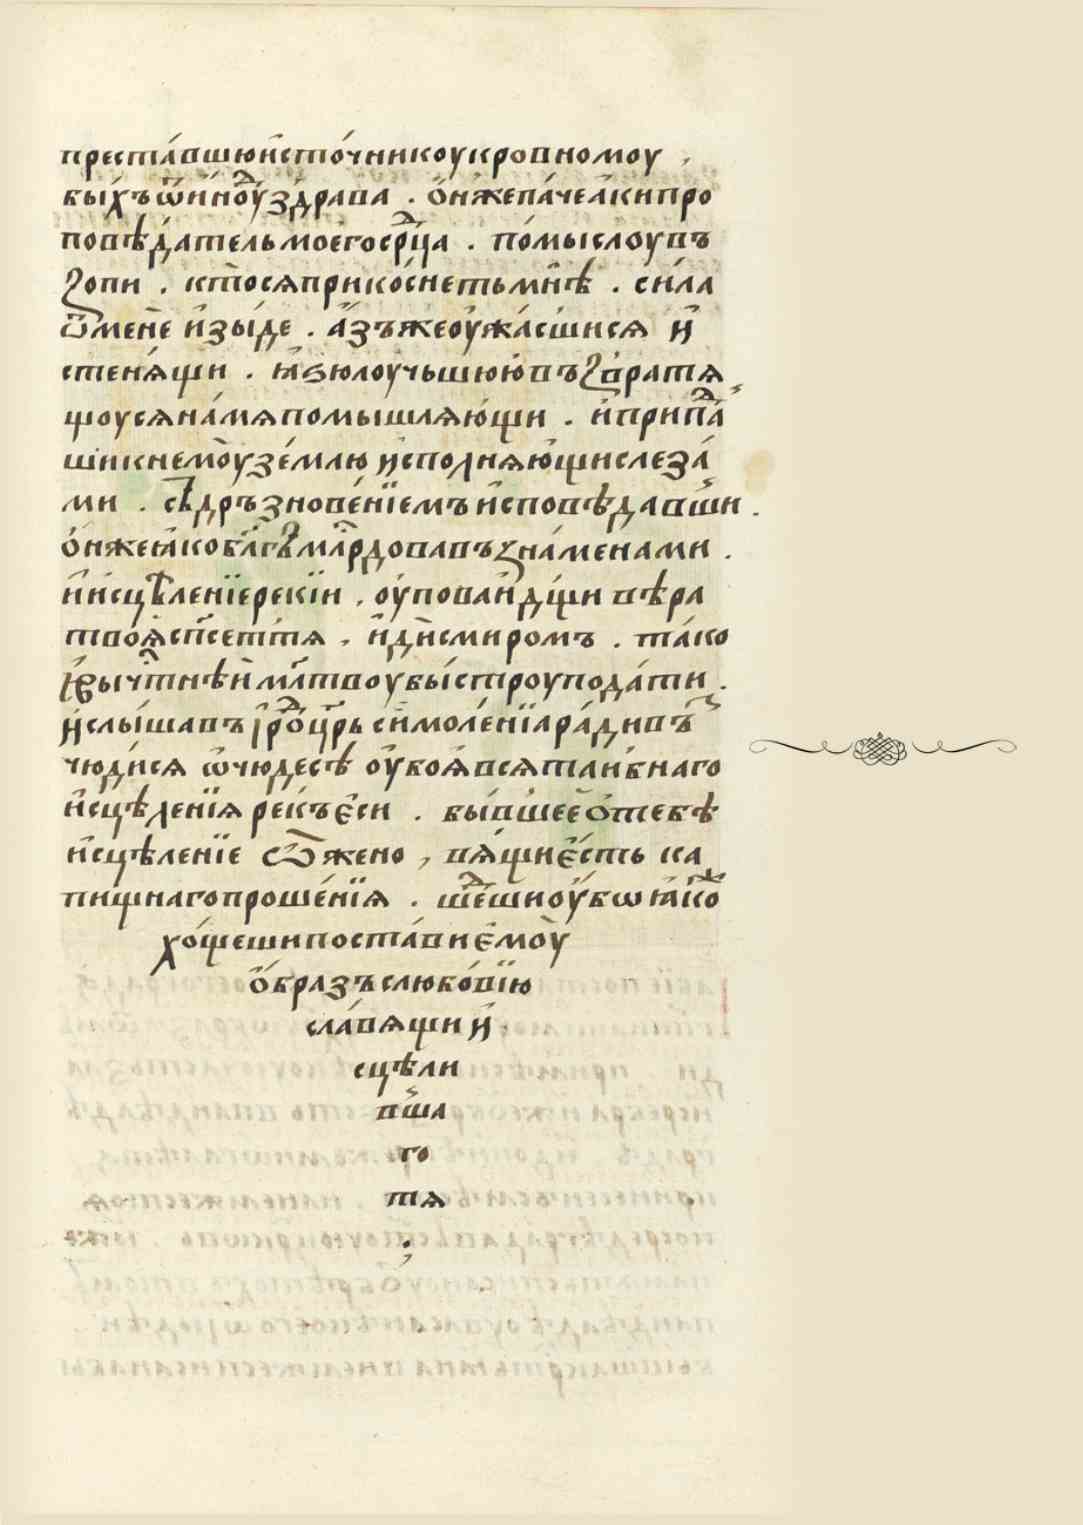 преста́вшюи҆сто́чникоукровномоу ,
бы́хъѿиноⷣу́здрава . ѻ҆́нжепа́чеа҆́кипро
повѣ́дательмоегосрⷣца . по́мыслоувъ
зопи . кто̀сѧприко́снетьмнѣ̀ . си́ла
ѿменѐ и҆зы́де . а҆́зъжеоужа́сшисѧ и҆
стенѧ́щи . ꙗ҆́вѣюлоучьшюювъзвратѧ
щоусѧна́мѧпомышлѧю́щи . и҆припаⷣ
шикнемо̀узе́млю и҆сполнѧю́щислеза́
ми . сде́ръзнове́нїемъи҆споѣ́давши .
ѻ҆́нжеꙗ҆кобл҃гъмлⷭ҇рдовавъзна́менами .
и҆и҆сцѣле́нїереки̂и . оу҆поваи́дщи вѣ́ра
твоѧ̀сп҃сеттѧ . и҆дѝсмиромъ . та́ко
кръвычⷭ҇тнѣ́и млⷭ҇твоубы́строупода́ти .
и҆слы́шавъ і҆́рѡⷣцр҃ь сі̀моле́нїара́дивъⷥ
чюди́сѧ ѡ҆чюдесѣ̀ оу҆боѧ́всѧтаи́внаго
и҆сцѣле́нїѧ ре́къе҆си . бы́вшее ѿтебѣ̀
и҆сцѣле́нїе ѿжено , вѧ́щие҆́сть ка
пищнагопроше́нїѧ . ше́ⷣшиоу́бѡ ꙗ҆́коⷤ
хо́щешипоста́вие҆мо̀у
ѻ҆́бразъслюбо́вїю
сла́вѧщи и҆
сцѣли
вша
го
тѧ
;